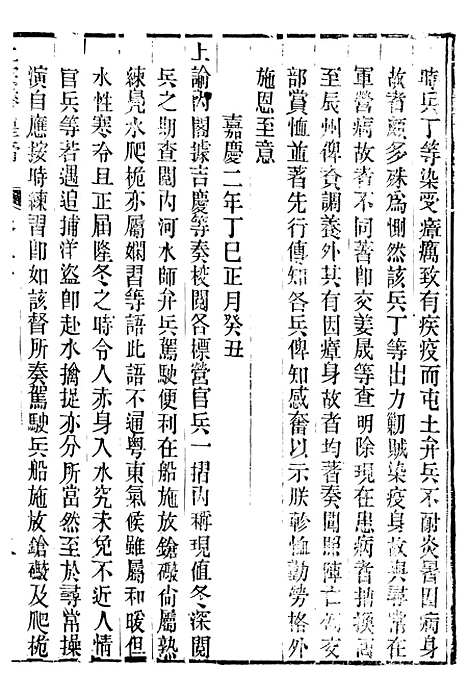 時兵丁等染受瘴癘致有疾疫而屯土弁兵不耐炎暑因病身
故者頗多殊爲惻然該兵丁等出力勦賊染疫身故與尋常在
軍營病故者不同著即交姜晟等查明除現在患病者
至辰州俾資調養外其有因瘴身故者均著奏聞照陣亡例交
部賞恤並著先行傳知各兵俾知感奮以示朕軫恤勤勞格外
施恩至意
嘉慶二年丁巳正月癸丑
上諭內閣據吉慶等奏校閱各標營官兵一摺內稱現值冬深閱
兵之期查閱內河水師弁兵駕駛便利在船施放鎗礮尙屬熟
練鳧水爬桅亦屬嫻習等語此語不通粵東氣候雖屬和暖但
水性寒冷且正屆隆冬之時令人赤身入水究未免不近人情
官兵等若遇追捕洋盜即赴水擒捉亦分所當然至於尋常操
演自應按時練習即如該督所奏駕駛兵船施放鎗礮及爬桅